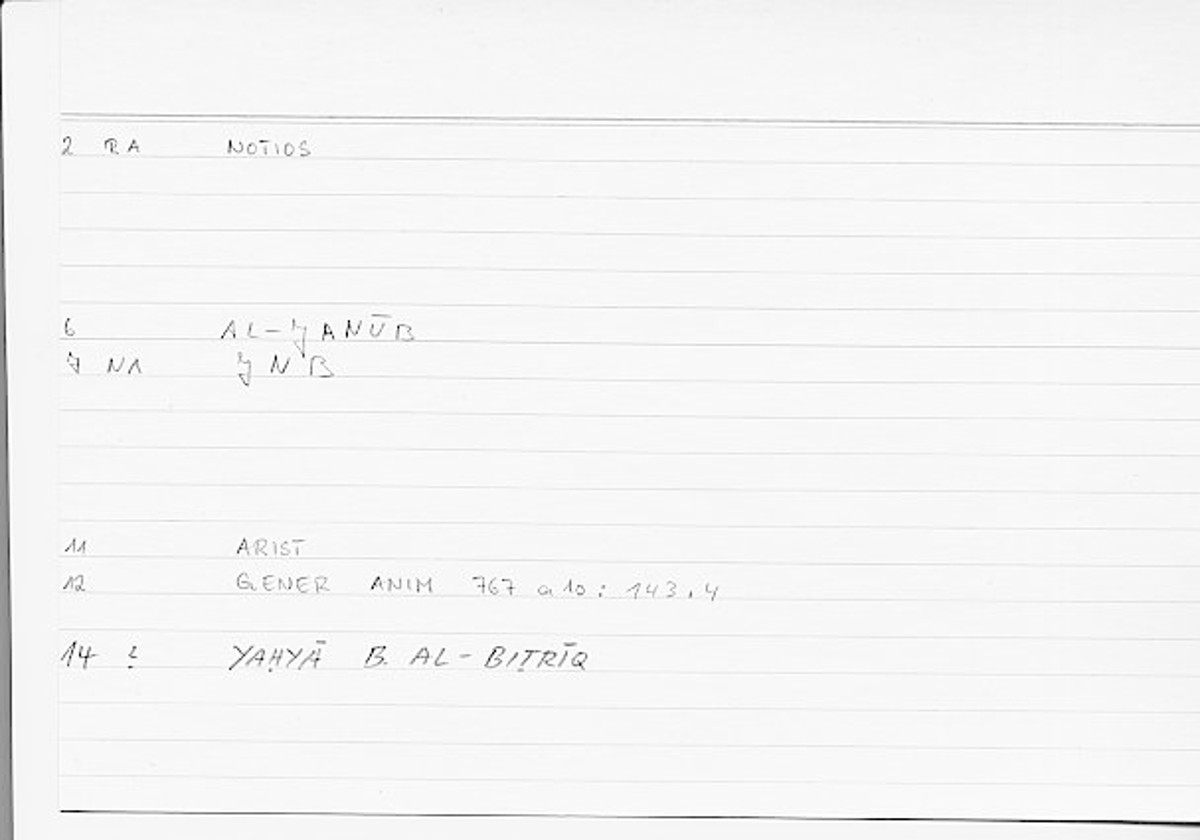 2 RA NOTIOS
6 AL-ǦANŪB
7 NA ǦNB
11 ARIST
12 GENER ANIM 767 a 10 : 143.4
14 ? YAḤYĀ B. AL-BIṬRĪQ